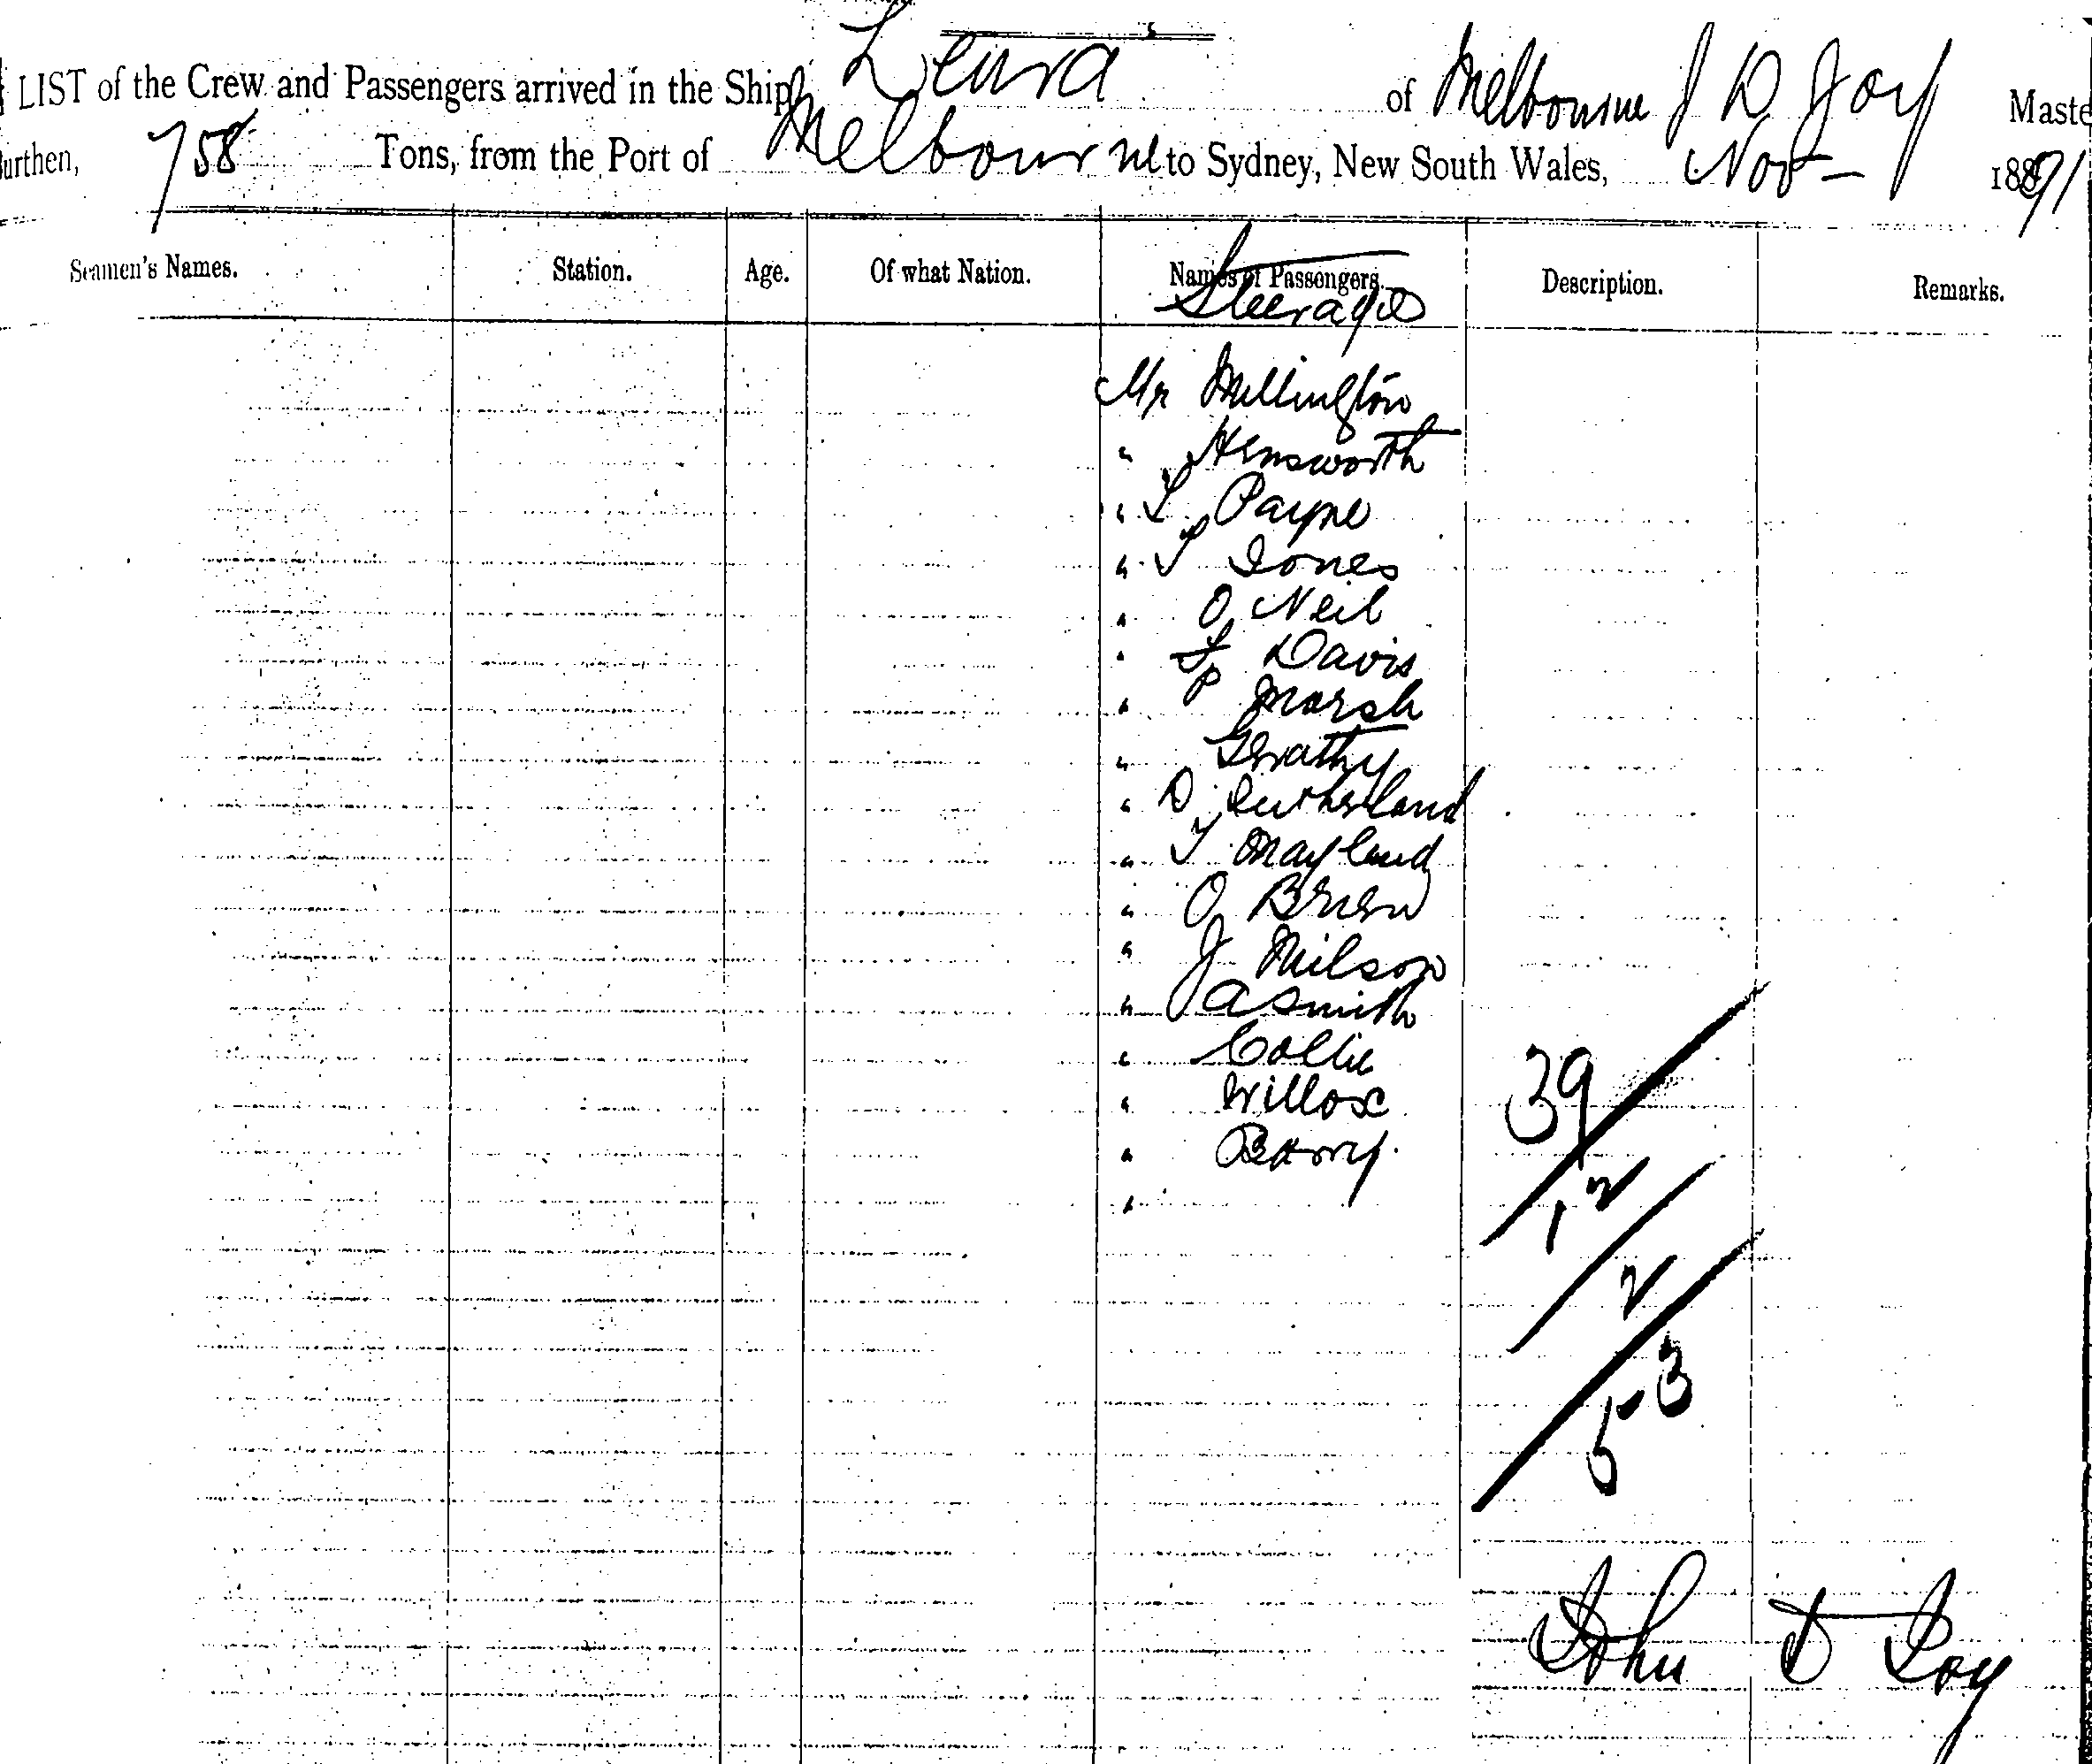 LIST of the Crew and Passengers arrived in the Ship Leura of Melbourne J D Joy Maste
urthen, 758 Tons, from the Port of Melbourne to Sydney, New South Wales, Nov - 1891
Seamen's Names. Station. Age. Of what Nation. Names of Passengers. Description. Remarks.
Steerage
Mr Millington
" Hemsworth
" L Payne
" T Jones
" O Neil
" Davis
" Marsh
" Gerathy
" D Sutherland
" T Mayland
" O Brien
" J Milson
" A Smith
" Collie
" Willox
" Barry.
"
39
12
2
53
John D Joy